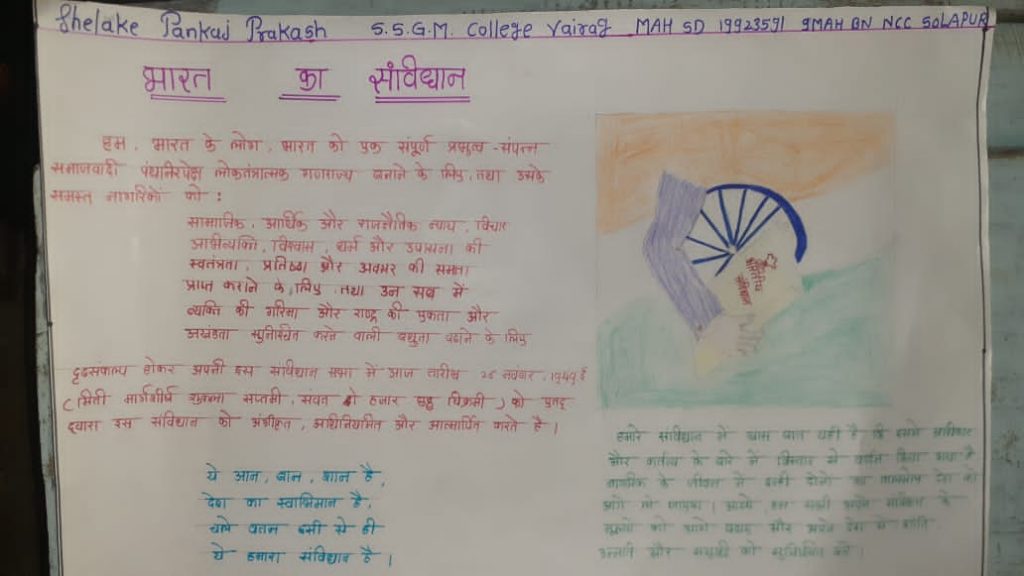 Shelake Pankaj Prakash S.S.G.M. College Vairag MAH SD 19923591 9MAH BN NCC SOLAPUR
भारत का संविधान
हम, भारत के लोग, भारत को एक संपूर्ण प्रभुत्व-संपन्न
समाजवादी पंथनिरपेक्ष लोकतंत्रात्मक गणराज्य बनाने के लिए, तथा उसके
समस्त नागरिकों को :
सामाजिक, आर्थिक और राजनैतिक न्याय, विचार
अभिव्यक्ति, विश्वास, धर्म और उपासना की
स्वतंत्रता, प्रतिष्ठा और अवसर की समता
प्राप्त कराने के लिए, तथा उन सब में
व्यक्ति की गरिमा और राष्ट्र की एकता और
अखंडता सुनिश्चित करने वाली बंधुता बढाने के लिए
दृढसंकल्प होकर अपनी इस संविधान सभा में आज तारीख 26 नवंबर, 1949 ई
(मिती मार्गशीर्ष शुक्ला सप्तमी, संवत दो हजार छह विक्रमी) को एतद्
द्वारा इस संविधान को अंगीकृत, अधिनियमित और आत्मार्पित करते है।
भारतीय
संविधान
ये आन, बान, शान है,
देश का स्वाभिमान है,
वतन इसी से ही
ये हमारा संविधान है।
हमारे संविधान में खास बात यही है कि इसमे अधिकार
और कर्तव्य के बारे में विस्तार से वर्णन किया गया है
नागरिक के जीवन में इन्ही दोनो का देश को
आगे ले जाएगा। हम सभी अपने संविधान के
को आगे और अपने देश में शांति,
उन्नति और समृद्धी को सुनिश्चित करे।